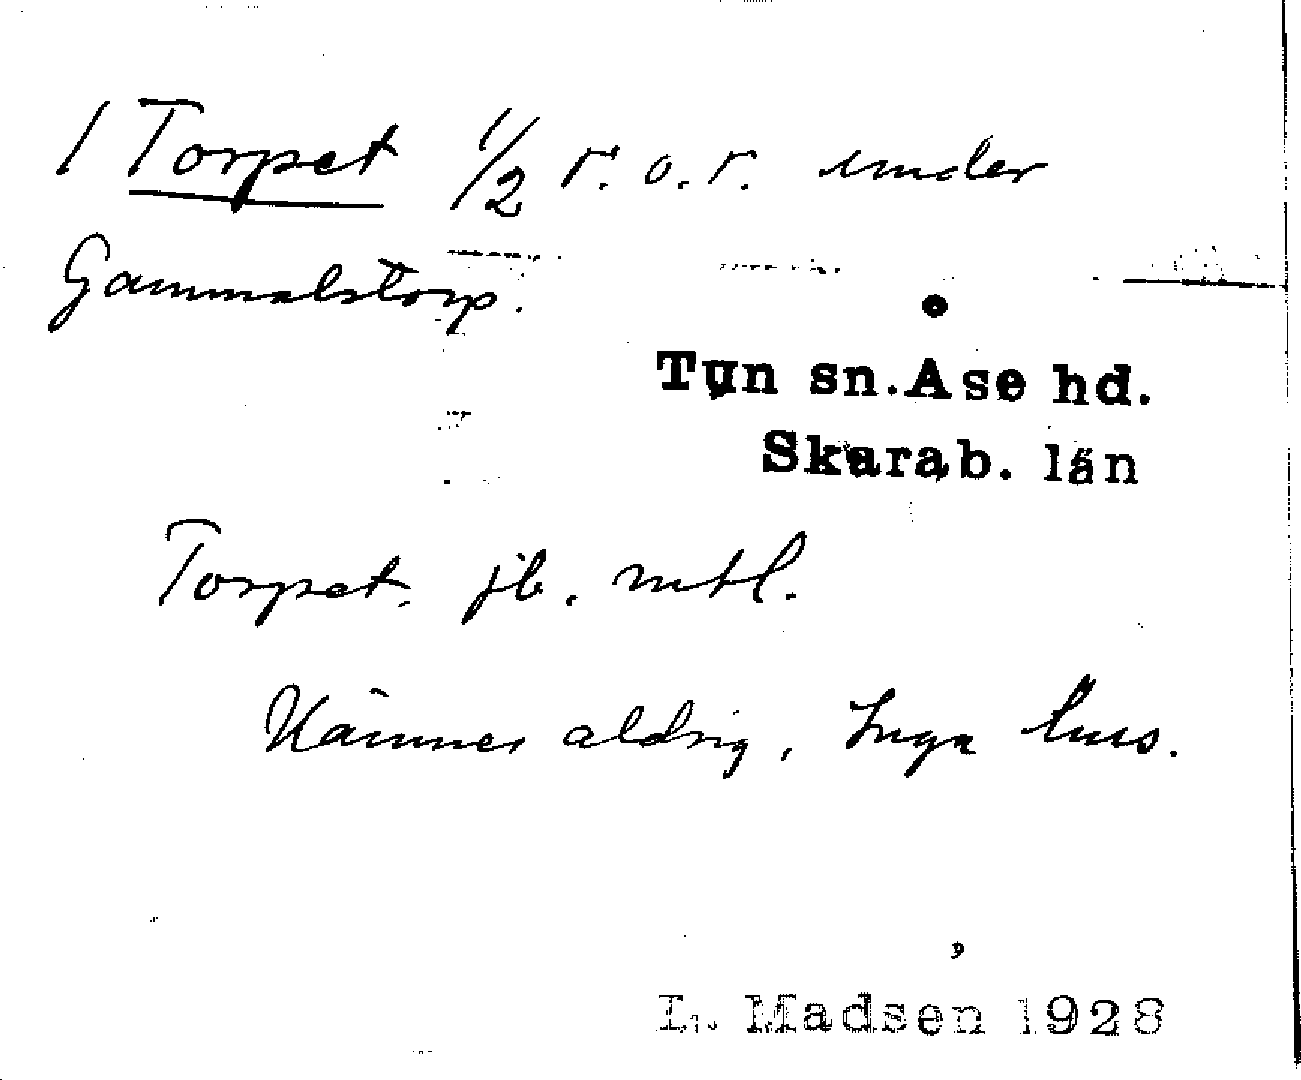 1 Torpet 1/2 r. o. r. under
Gammalstorp.
Tun sn. Åse hd.
Skarab. län
Torpet. jb. mtl.
Nämnes aldrig, Inga hus.
L. Madsen 1928